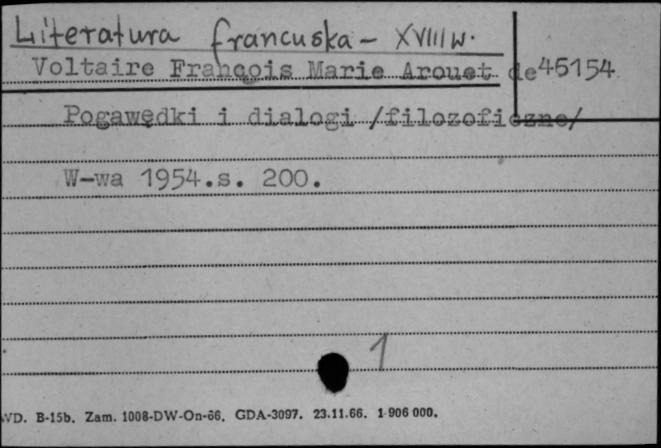 Literatura francuska - XVIII w.
Voltaire François Marie Arouet de 45154
Pogawędki i dialogi /filozoficzne/
W-wa 1954.s. 200.
1
WD. B-15b. Zam. 1008-DW-On-66. GDA-3097. 23.11.66. 1 906 000.